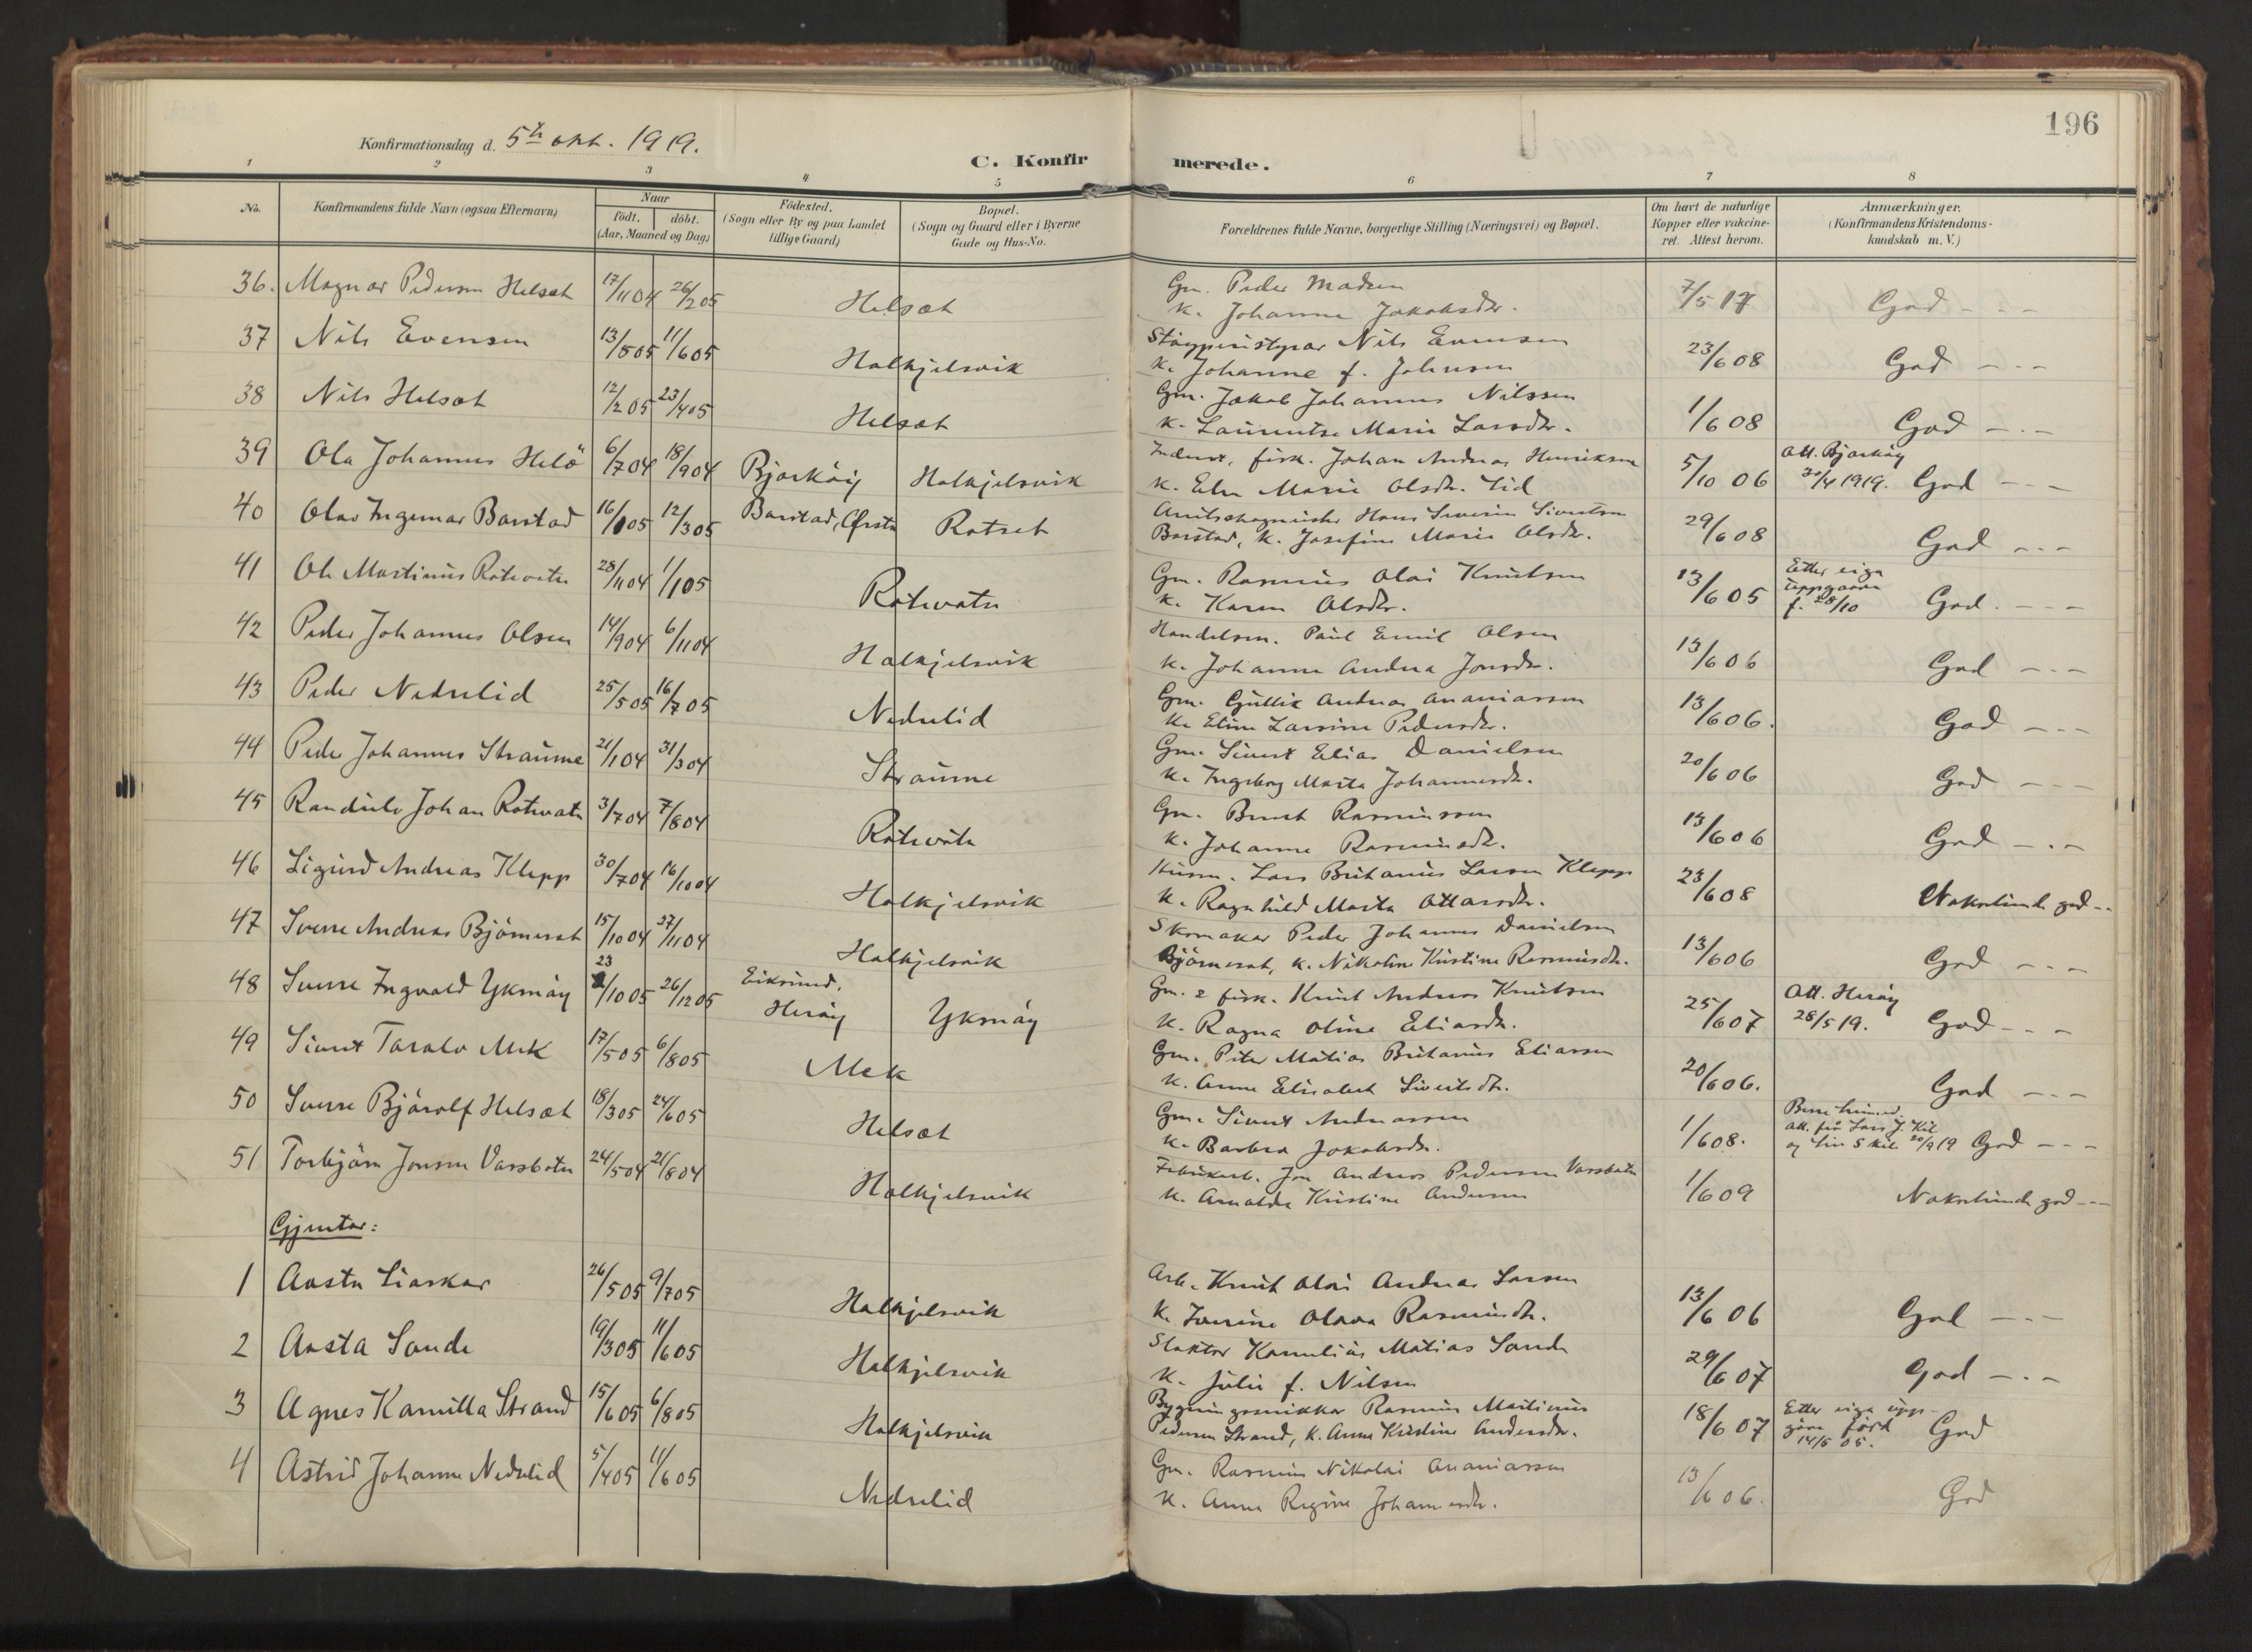 196
Konfirmationsdag d. 5te okt. 1919.
C. Konfirmerede.
1 2 3 4 5 6 7 8
No. Konfirmandens fulde Navn (ogsaa Efternavn) Naar födt. döbt. (Aar, Maaned og Dag) Födested. (Sogn eller By og paa Landet tillige Gaard) Bopæl. (Sogn og Gaard eller i Byerne Gade og Hus-No. Forældrenes fulde Navne, borgerlige Stilling (Næringsvei) og Bopæl. Om havt de naturlige Kopper eller vakcineret. Attest herom. Anmærkninger. (Konfirmandens Kristendomskundskab m. V.)
36. Magnar Pedersen Helsæt 17/11 04 26/2 05 Helsæt Gm. Peder Madsen
K. Johanne Jakobsdr. 7/5 17 God - - -
37 Nils Evensen 13/5 05 11/6 05 Halkjelsvik Nils Evensen
K. Johanne f. Johnsen 23/6 08 God - - -
38 Nils Helsæt 12/2 05 23/4 05 Helsæt Gm. Jakob Johannes Nilssen
K. Laurentse Marie Larsdr. 1/6 08 God - - -
39 Ola Johannes Helö 6/7 04 18/9 04 Bjarköy Halkjelsvik Inderst, fisk. Johan Andreas Henriksen
K. Marie Olsdr. Lid 5/10 06 Att. Bjarköy
30/4 1919. God - - -
40 Olav Ingemar Barstad 16/1 05 12/3 05 Barstad, Örsta Rotset Hans Severin Sivertsen
Barstad, K. Josefine Marie Olsdr. 29/6 08 God - - -
41 Ole Martinus Rotevatn 28/11 04 1/1 05 Rotevatn Gm. Rasmus Olai Knutsen
K. Karen Olsdr. 13/6 05 Etter eiga
uppgaava
f. 28/10 God. - - -
42 Peder Johannes Olsen 14/9 04 6/11 04 Halkjelsvik Handelsm. Paul Emil Olsen
K. Johanne Andrea Jonsdr. 13/6 06 God - - -
43 Peder Nedrelid 25/5 05 16/7 05 Nedrelid Gm. Gullik Andreas Ananiassen
K. Eline Larsine Pedersdr. 13/6 06. God - - -
44 Peder Johannes Straume 21/1 04 31/3 04 Straume Gm. Sivert Elias Danielsen
K. Ingeborg Marta Johannesdr. 20/6 06 God - - -
45 Randulv Johan Rotevatn 3/7 04 7/8 04 Rotevatn Gm. Bernt Rasmussen
K. Johanne Rasmusdr. 13/6 06 God - - -
46 Sigurd Andreas Klepp 30/7 04 16/10 04 Halkjelsvik Husm. Lars Britanius Larsen Klepp
K. Ragnhild Marta Ottarsdr. 23/6 08 Nokolunde god - -
47 Sverre Andreas Bjørneset 15/10 04 27/11 04 Halkjelsvik Skomakar Peder Johannes Danielsen
Bjørneset, K. Nikoline Kristine Rasmusdr. 13/6 06 God - - -
48 Sverre Ingvald Yksnöy 23/10 05 26/12 05 Eiksund,
Heröy Yksnöy Gm. & fisk. Knut Andreas Knutsen
K. Ragna Oline Eliasdr. 25/6 07 Att. Heröy
28/5 19. God - - -
49 Sivert Taralv Mek 17/5 05 6/8 05 Mek Gm. Peter Matias Britanius Eliassen
K. Anne Elisabet Sivertsdr. 20/6 06. God - - -
50 Sverre Bjårolf Helsæt 18/3 05 24/6 05 Helsæt Gm. Sivert Andreassen
K. Barbra Jakobsdr. 1/6 08.
att. frå Lars J. Kil
og 20/9 19 God - - -
51 Torbjørn Jonsen Vassbotn 24/5 04 21/8 04 Halkjelsvik Fabrikarb. Jon Andreas Pedersen Vassbotn
K. Arnalda Kristine Andersen 1/6 09 Nokolunde god - - -
Gjentor:
1 Aasta Liaskar 26/5 05 9/7 05 Halkjelsvik Arb. Knut Olai Andreas Larsen
K. Olava Rasmusdr. 13/6 06 God - - -
2 Aasta Sande 19/3 05 11/6 05 Halkjelsvik Slaktar Kornelius Matias Sande
K. Julie f. Nilsen 29/6 07 God - - -
3 Agnes Kamilla Strand 15/6 05 6/8 05 Halkjelsvik Bygningssnikkar Rasmus Martinus
Pedersen Strand, K. Anna Kristine Andersdr. 18/6 07 Etter eiga upp-
gåva född
14/5 05. God
4 Astrid Johanne Nedrelid 5/4 05 11/6 05 Nedrelid Gm. Rasmus Nikolai Ananiassen
K. Anna Regine Johannesdr. 13/6 06. God